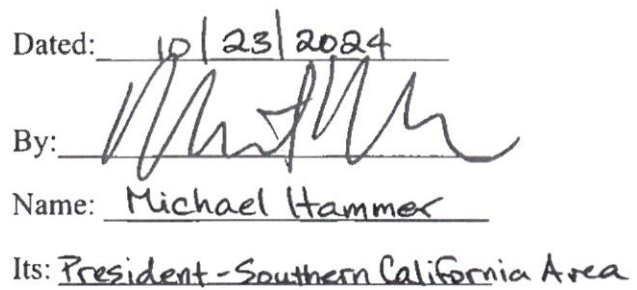 Dated: 10/23/2024
By:
Name: Michael Hammer
Its: President - Southern California Area